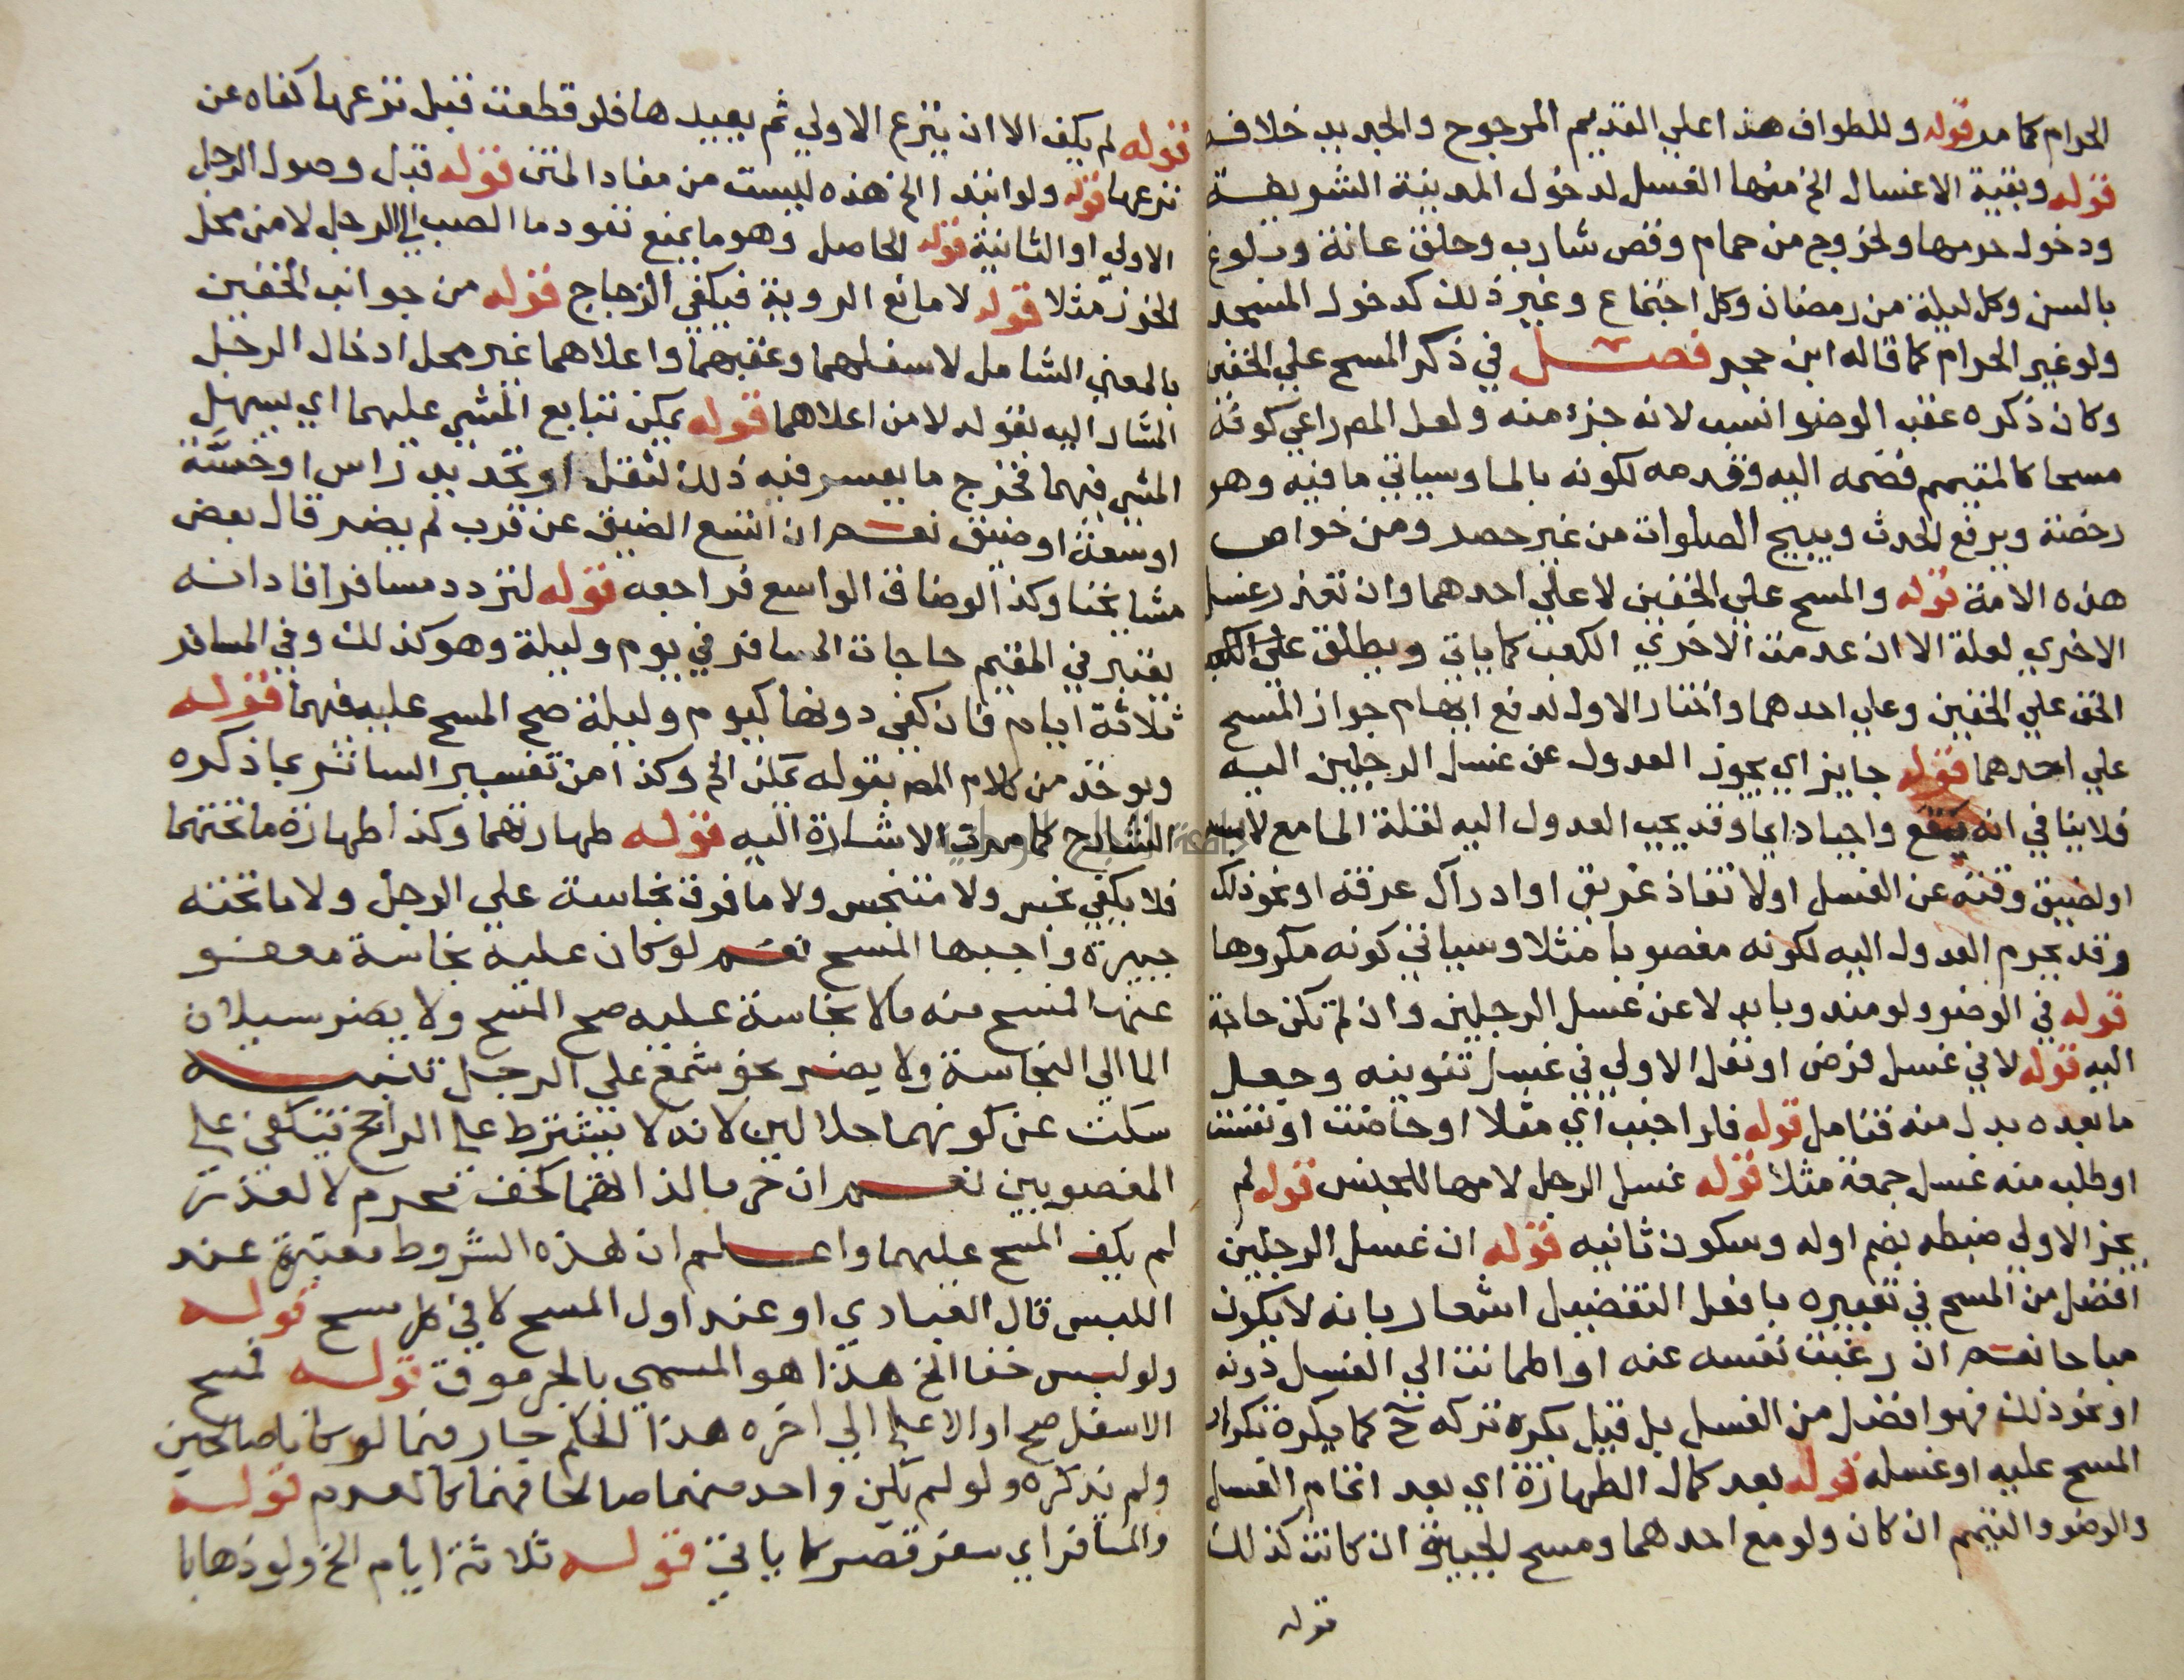 الحرام كما مر قوله وللطواف هذا علي القديم المرجوح والجديد خلافه
قوله وبقية الاغسال الخ منها الغسل لدخول المدينة الشريفة
ودخول حرمها ولخروج من حمام وقص شارب وحلق عانة وبلوغ
بالسن وكل ليلة من رمضان وكل اجتماع وغير ذلك كدخول المسجد
ولو غير الحرام كما قاله ابن حجر فصل في ذكر المسح علي الخفين
وكان ذكره عقب الوضو انسب لانه جزء منه ولعل المص راعي كونه
مسحا كالمتيمم فضمه اليه وقدمه لكونه بالما وسياتي ما فيه وهو
رخصة ويرفع الحدث ويبيح الصلوات من غير حصر ومن خواص
هذه الامة قوله والمسح علي الخفين لا علي احدهما وان تعذر غسل
الاخري لعلة الا ان عدمت الاخري الكعب كما ياتي ويطلق علي
الخف علي الخفين وعلي احدهما واختار الاول لدفع ايهام جواز المسح
علي احدهما قوله جايز اي يجوز العدول عن غسل الرجلين اليه
فلا ينافي انه يقع واجبا دايما وقد يجب العدول اليه لقلة الما مع لابسه
او لضيق وقته عن الغسل او لانقاذ غريق او ادراك عرفة او نحو ذلك
وقد يحرم العدول اليه لكونه مغصوبا مثلا وسياتي كونه مكروها
قوله في الوضو ولو مندوبا بدلا عن غسل الرجلين وان لم تكن حاجة
اليه قوله لا في غسل فرض او نفل الاولي في غسل تنوينه وجعل
ما بعده بدل منه فتامل قوله فلو اجنب اي مثلا او حاضت او نفست
او طلب منه غسل جمعة مثلا قوله غسل الرجل لامرها للجنس قوله لم
يجز الاولي ضبطه بضم اوله وسكون ثانيه قوله ان غسل الرجلين
افضل من المسح في تعبيره بافعل التفضيل اشعار بانه لا يكون
مباحا نعم ان رغبت نفسه عنه او اطمانت الي الغسل دونه
او نحو ذلك فهو افضل من الغسل بل قيل يكره تركه ح كما يكره تكرار
المسح عليه او غسله قوله بعد كمال الطهارة اي بعد اتمام الغسل
والوضو والتيمم ان كان ولو مع احدهما ومسح الجبيرة ان كانت كذلك
قوله
قوله لم يكف الا ان ينزع الاولي ثم يعيدها فلو قطعت قبل نزعها كفاه عن
نزعها قوله ولو ابتدا الخ هذه ليست من مفاد المتن قوله قبل وصول الرجل
الاولي او الثانية قوله الحاصل وهو ما يمنع نفود ما الصب الي الرجل لا من محل
الخرز مثلا قوله لا مانع الروية فيكفي الزجاج قوله من جوانب الخفين
بالمعني الشامل لاسفلهما وعقبهما واعلاهما غير محل ادخال الرجل
المشار اليه بقوله لا من اعلاهما قوله يمكن تتابع المشي عليهما اي يسهل
المشي فيهما فخرج ما يعسر فيه ذلك لثقل او تحديد راس او خسة
او سعة او ضيق نعم ان اتسع الضيق عن قرب لم يضر قال بعض
مشايخنا وكذا لو ضاق الواسع فراجعه قوله لتردد مسافر افاد انه
يعتبر في المقيم حاجات المسافر في يوم وليلة وهو كذلك وفي المسافر
ثلاثة ايام فان كفي دونها كيوم وليلة صح المسح عليه فيهما قوله
ويوخذ من كلام المص بقوله يمكن الخ وكذا من تفسير الساتر بما ذكره
الشارح كما مرت الاشارة اليه قوله طهارتهما وكذا طهارة ما تحتهما
فلا يكفي نجس ولا متنجس ولا ما فوق نجاسة علي الرجل ولا ما تحته
جبيرة واجبها المسح نعم لو كان عليه نجاسة معفو
عنها فمسح منه ما لا نجاسة عليه صح المسح ولا يضر سيلان
الما الي النجاسة ولا يضر نحو شمع علي الرجل تنبيه
سكت عن كونهما حلالين لانه لا يشترط علي الراجح فيكفي علي
المغصوبين نعم ان حرما لذاتهما كخف محرم لا لعذر
لم يكف المسح عليهما واعلم ان هذه الشروط معتبرة عند
اللبس قال العبادي او عند اول المسح لا في كل مسح قوله
ولو لبس خفا الخ هذا هو المسمي بالجرموق قوله فمسح
الاسفل صح او الاعلي الي اخره هذا الحكم جار فيما لو كانا صالحين
ولم يذكره ولو لم يكن واحد منهما صالحا فهما كالعدم قوله
والمسافر اي سفر قصر كما ياتي قوله ثلاثة ايام الخ ولو ذهابا